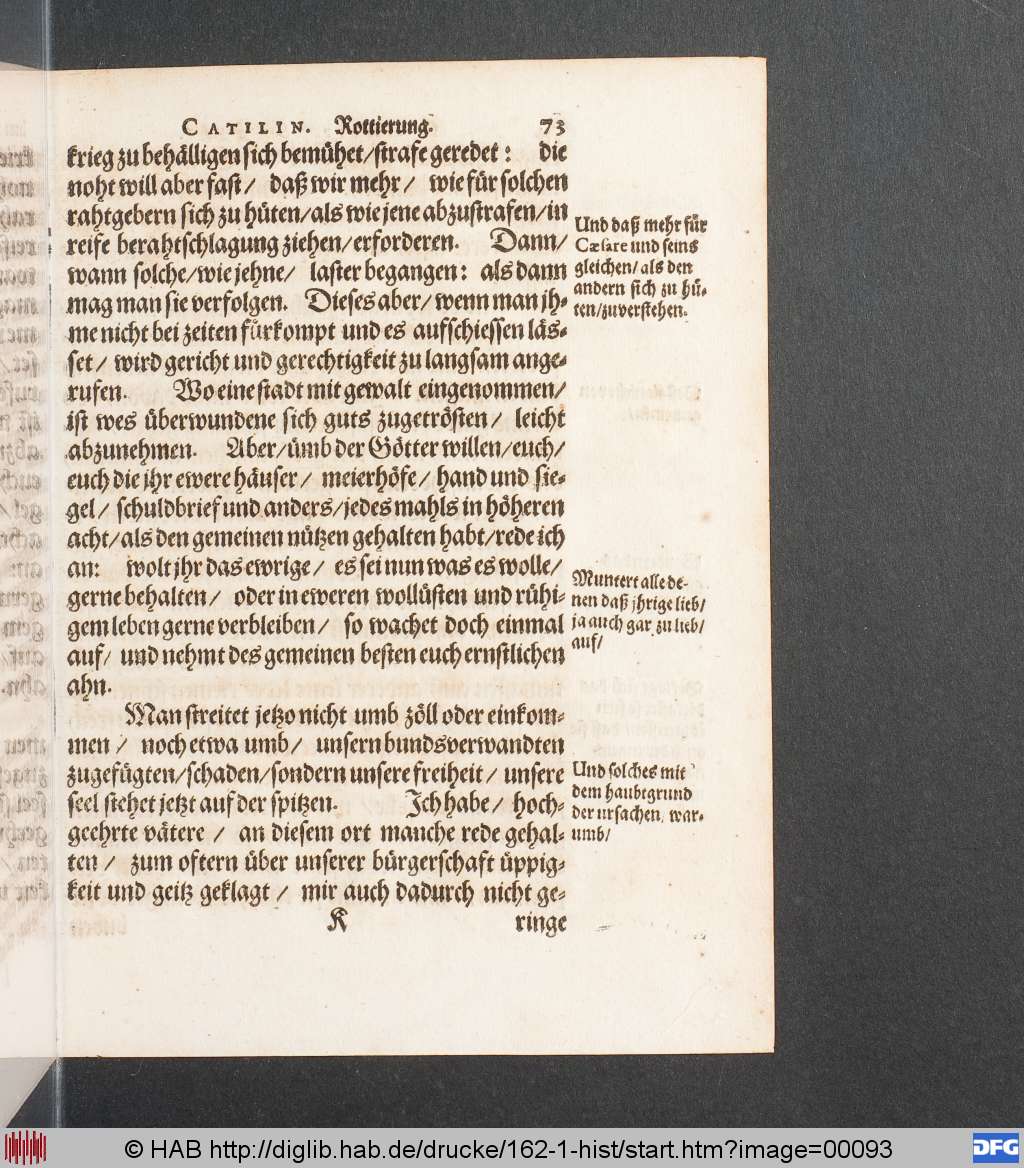 CATILIN. Rottierung. 73
krieg zu behälligen sich bemühet/strafe geredet: die
noht will aber fast/ daß wir mehr/ wie für solchen
rahtgebern sich zu hüten/als wie jene abzustrafen/in
reife berahtschlagung ziehen/erforderen. Dann/
wann solche/wie jehne/ laster begangen: als dann
mag man sie verfolgen. Dieses aber/ wenn man jh-
me nicht bei zeiten fürkompt und es aufschiessen läs-
set/ wird gericht und gerechtigkeit zu langsam ange-
rufen. Wo eine stadt mit gewalt eingenommen/
ist wes überwundene sich guts zugetrösten/ leicht
abzunehmen. Aber/ümb der Götter willen/euch/
euch die jhr ewere häuser/ meierhöfe/ hand und sie-
gel/ schuldbrief und anders/jedes mahls in höheren
acht/als den gemeinen nützen gehalten habt/rede ich
an: wolt jhr das ewrige/ es sei nun was es wolle/
gerne behalten/ oder in eweren wollüsten und rühi-
gem leben gerne verbleiben/ so wachet doch einmal
auf/ und nehmt des gemeinen besten euch ernstlichen
ahn.
Man streitet jetzo nicht umb zöll oder einkom-
men/ noch etwa umb/ unsern bundsverwandten
zugefügten/schaden/sondern unsere freiheit/ unsere
seel stehet jetzt auf der spitzen. Ich habe/ hoch-
geehrte vätere/ an diesem ort manche rede gehal-
ten/ zum oftern über unserer bürgerschaft üppig-
keit und geitz geklagt/ mir auch dadurch nicht ge-
K ringe
Und daß mehr für
Cæsare und seins
gleichen/als den
andern sich zu hü-
ten/zuverstehen.
Muntert alle de-
nen daß jhrige lieb/
ja auch gar zu lieb/
auf/
Und solches mit
dem haubtgrund
der ursachen, war-
umb/
© HAB http://diglib.hab.de/drucke/162-1-hist/start.htm?image=00093
DFG